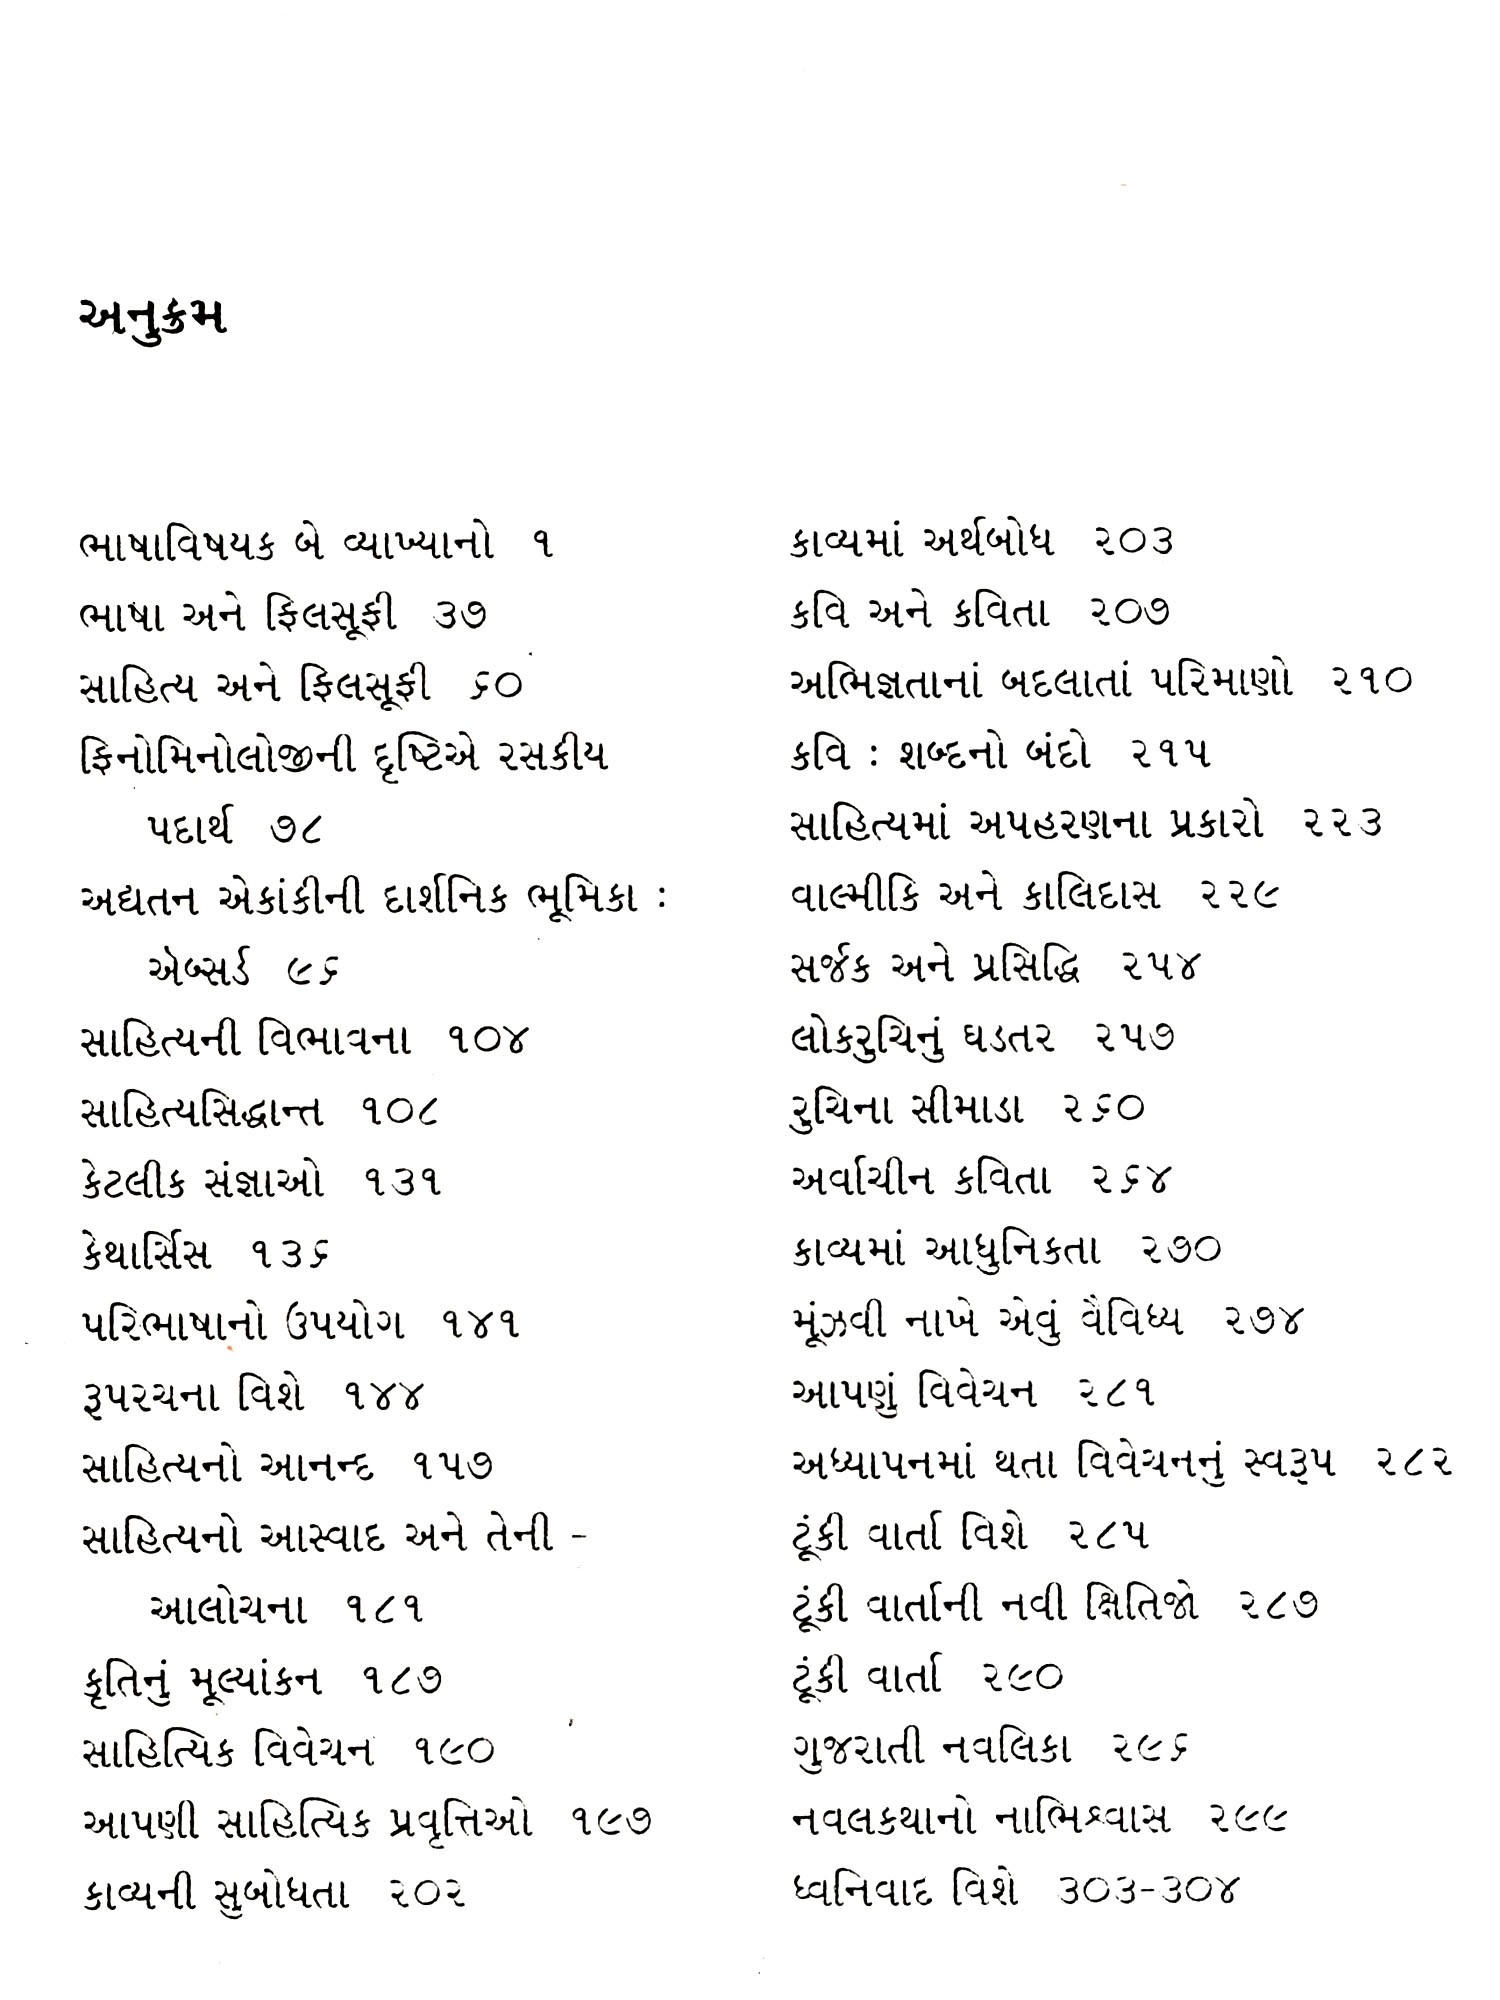 અનુક્રમ
ભાષાવિષયક બે વ્યાખ્યાનો ૧
ભાષા અને ફિલસૂફી ૩૭
સાહિત્ય અને ફિલસૂફી ૬૦
ફિનોમિનોલોજીની દૃષ્ટિએ રસકીય
પદાર્થ ૭૮
અદ્યતન એકાંકીની દાર્શનિક ભૂમિકા :
ઍબ્સર્ડ ૯૬
સાહિત્યની વિભાવના ૧૦૪
સાહિત્યસિદ્ધાન્ત ૧૦૮
કેટલીક સંજ્ઞાઓ ૧૩૧
કેથાર્સિસ ૧૩૬
પરિભાષાનો ઉપયોગ ૧૪૧
રૂપરચના વિશે ૧૪૪
સાહિત્યનો આનન્દ ૧૫૭
સાહિત્યનો આસ્વાદ અને તેની -
આલોચના ૧૮૧
કૃતિનું મૂલ્યાંકન ૧૮૭
સાહિત્યિક વિવેચન ૧૯૦
આપણી સાહિત્યિક પ્રવૃત્તિઓ ૧૯૭
કાવ્યની સુબોધતા ૨૦૨
કાવ્યમાં અર્થબોધ ૨૦૩
કવિ અને કવિતા ૨૦૭
અભિજ્ઞતાનાં બદલાતાં પરિમાણો ૨૧૦
કવિ : શબ્દનો બંદો ૨૧૫
સાહિત્યમાં અપહરણના પ્રકારો ૨૨૩
વાલ્મીકિ અને કાલિદાસ ૨૨૯
સર્જક અને પ્રસિદ્ધિ ૨૫૪
લોકરુચિનું ઘડતર ૨૫૭
રુચિના સીમાડા ૨૬૦
અર્વાચીન કવિતા ૨૬૪
કાવ્યમાં આધુનિકતા ૨૭૦
મૂંઝવી નાખે એવું વૈવિધ્ય ૨૭૪
આપણું વિવેચન ૨૮૧
અધ્યાપનમાં થતા વિવેચનનું સ્વરૂપ ૨૮૨
ટૂંકી વાર્તા વિશે ૨૮૫
ટૂંકી વાર્તાની નવી ક્ષિતિજો ૨૮૭
ટૂંકી વાર્તા ૨૯૦
ગુજરાતી નવલિકા ૨૯૬
નવલકથાનો નાભિશ્વાસ ૨૯૯
ધ્વનિવાદ વિશે ૩૦૩-૩૦૪